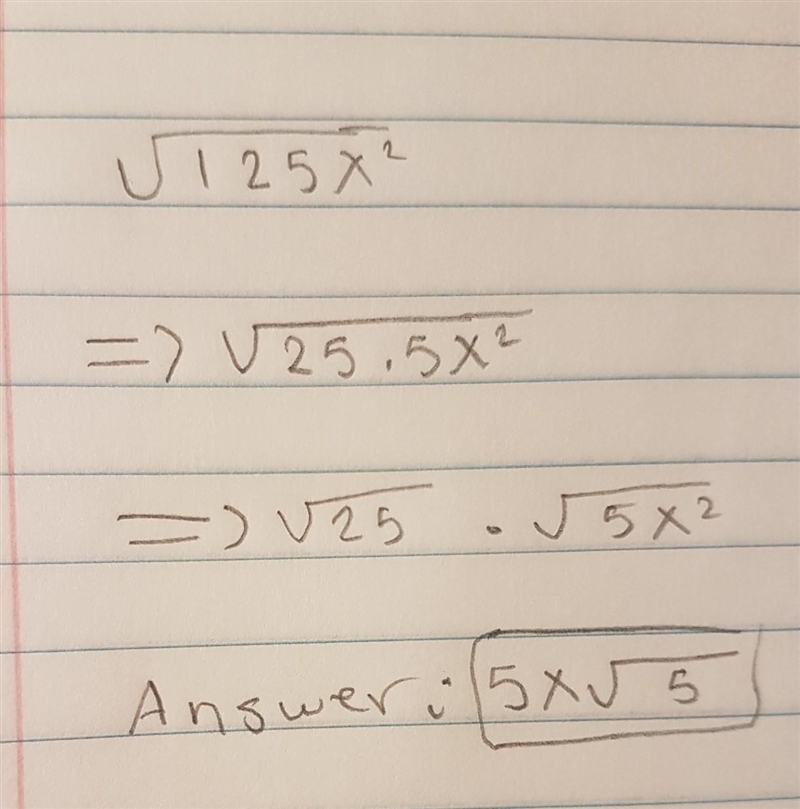 √125x²
=> √25 . 5x²
=> √25 . √5x²
Answer: 5x√5